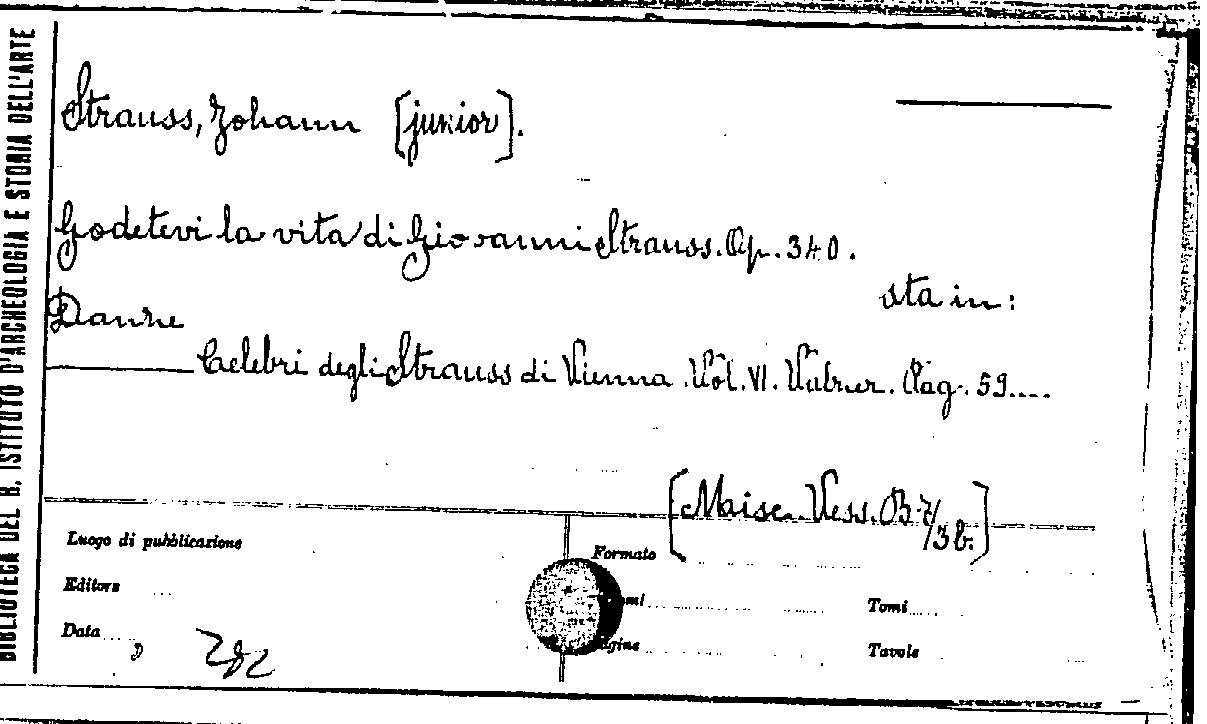 BIBLIOTECA DEL R. ISTITUTO D'ARCHEOLOGIA E STORIA DELL'ARTE
Strauss, Johann [junior].
Godetevi la vita di Giovanni Strauss. Op. 340.
sta in:
Danze
Celebri degli Strauss di Vienna. Vol. VI. Valzer. Pag. 59....
[Misc. Vess. B.
3b.]
Luogo di pubblicazione
Formato
Editore
Tomi
Data
Tavole